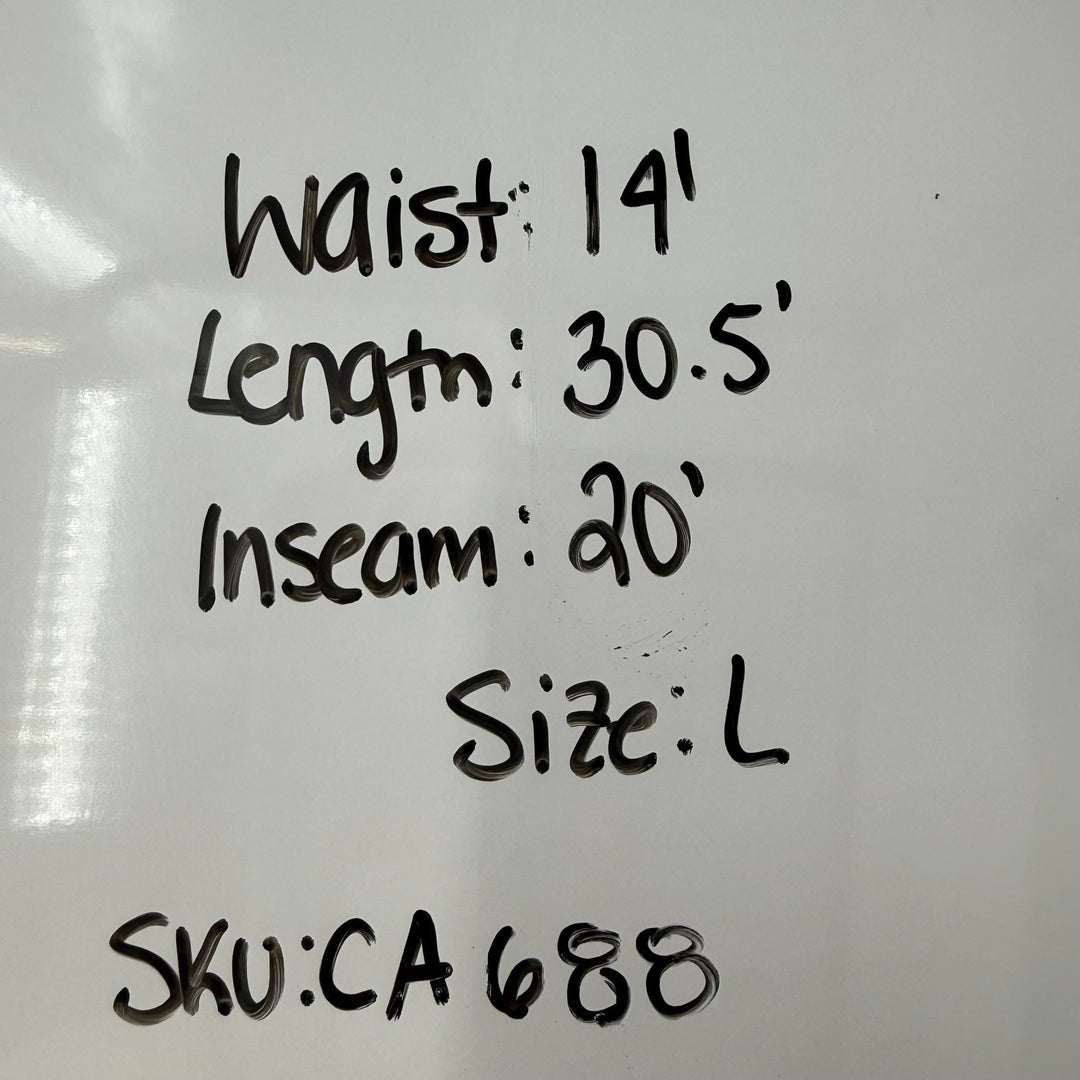 Waist: 14'
Length: 30.5'
Inseam: 20'
Size: L
SKU: CA 688